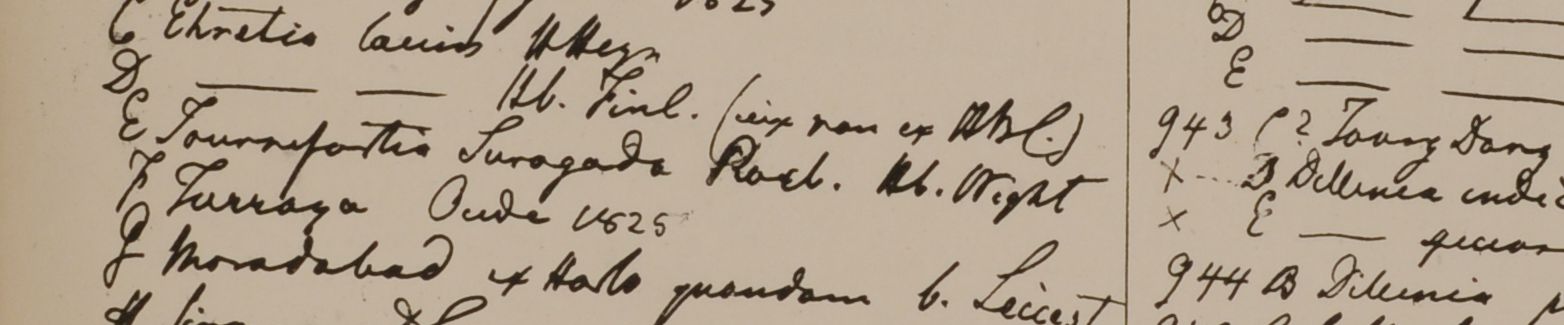 1825
C Ehretia laevis HHeyn
D —— —— Hb. Finl. (vix non ex HBC.)
E Tournefortia Suragada Roxb. Hb. Wight
F Turraya Oude 1825
G Moradabad ex Horto quondam b. Leicest
D —— ——
E —— ——
943 C? Taung Dong
× B Dillenia indic
× E ——
944 B Dillenia p